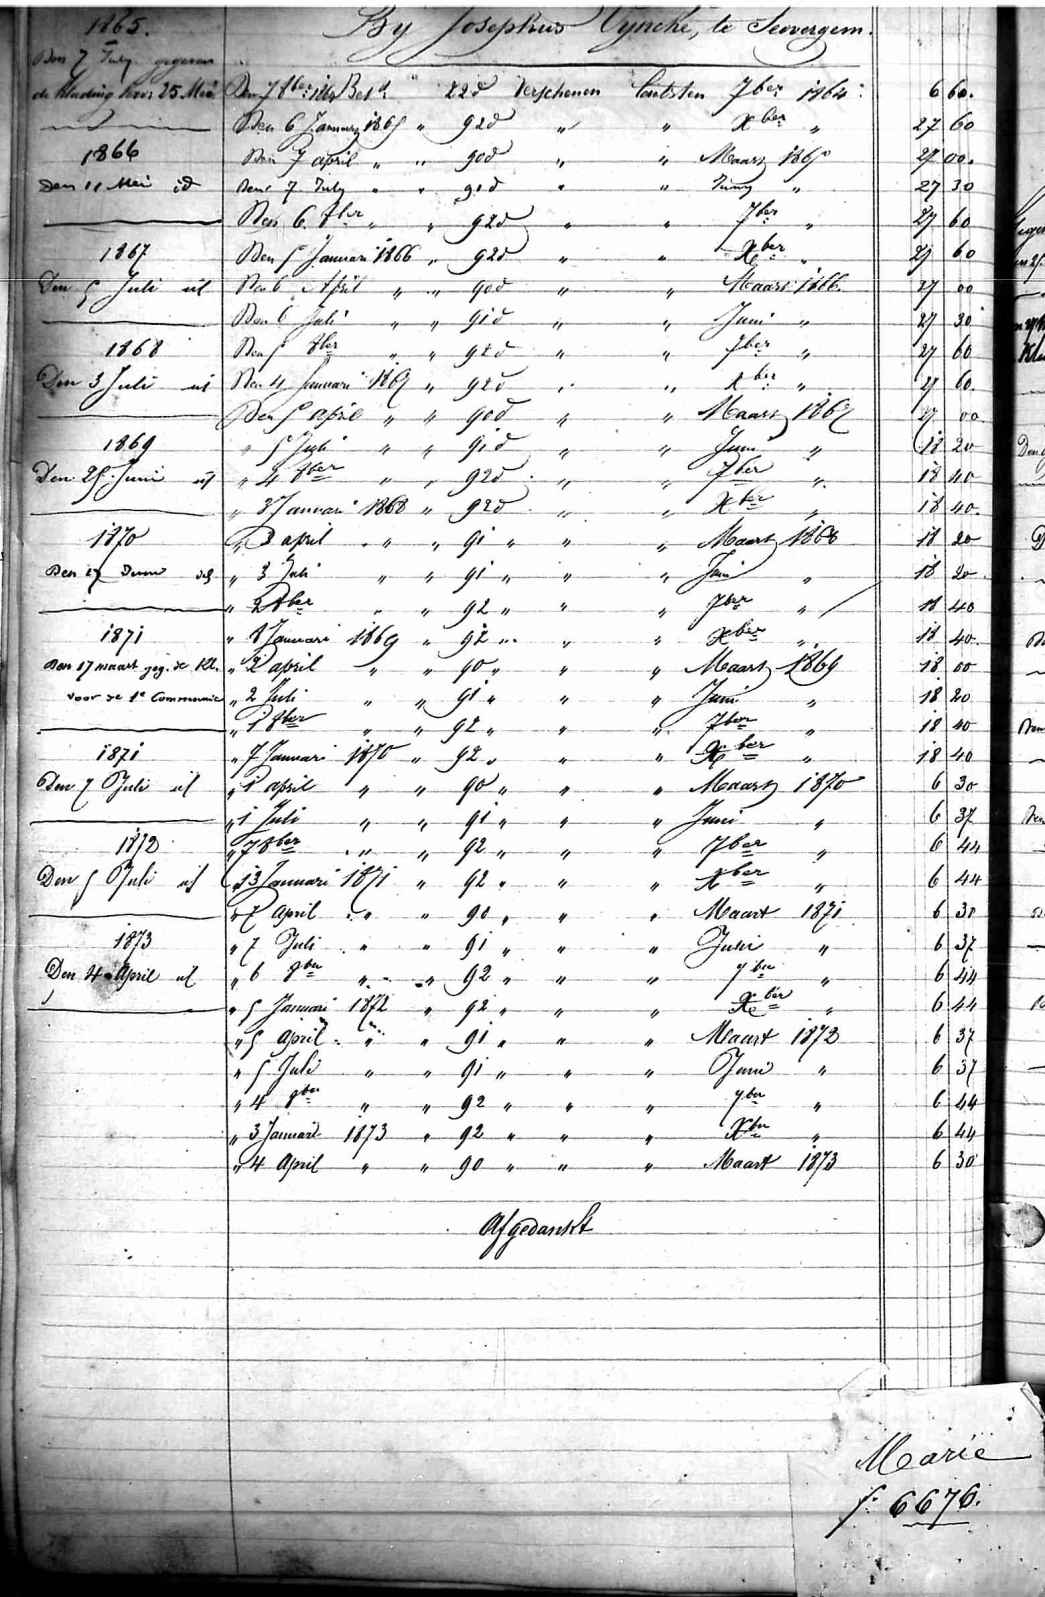 1865.
By Josephus Vyncke, te Severgem.
Den 7 July gegeven
de kleeding voor 25 Mei
Den 7 8ber 1864 Betd " 22d verschenen laatsten 7ber 1864. 6 60.
Den 6 January 1865 " 92d " " Xber " 27 60
1866
Den 7 april " " 90d " " Maart 1865 27 00.
Den 11 Mei id
Den 7 July " " 91d " " Juny " 27 30
Den 6 8ber " " 92d " " 7ber " 27 60
1867
Den 5 Januari 1866 " 92d " " Xber " 27 60
Den 5 Juli id
Den 6 April " " 90d " " Maart 1866. 27 00
Den 6 Juli " " 91d " " Juni " 27 30
1868
Den 5 8ber " " 92d " " 7ber " 27 60
Den 3 Juli id
Den 4 Januari 1867 " 92d " " Xber " 27 60
Den 5 april " " 90d " " Maart 1867 27 00
1869
" 5 Juli " " 91d " " Juni " 18 20
Den 25 Juni id
" 4 8ber " " 92d " " 7ber " 18 40
" 3 Januari 1868 " 92d " " Xber " 18 40.
1870
" 3 april " " 91 " " " Maart 1868 18 20
Den 17 Juni id
" 3 Juli " " 91 " " " Juni " 18 20
" 2 8ber " " 92 " " " 7ber " 18 40
1871
" 8 Januari 1869 " 92 " " " Xber " 18 40.
Den 17 maart geg. de kl.
" 2 april " " 90 " " " Maart 1869 18 00
voor de 1e Communie
" 2 Juli " " 91 " " " Juni " 18 20
" 1 8ber " " 92 " " " 7ber " 18 40
1871
" 7 Januari 1870 " 92 " " " Xber " 18 40
Den 7 Juli id
" 1 april " " 90 " " " Maart 1870 6 30
" 1 Juli " " 91 " " " Juni " 6 37
1872
" 7 8ber " " 92 " " " 7ber " 6 44
Den 5 Juli id
" 13 Januari 1871 " 92 " " " Xber " 6 44
" 7 April " " 90 " " " Maart 1871 6 30
1873
" 7 Juli " " 91 " " " Juni " 6 37
Den 4 April id
" 6 8ber " " 92 " " " 7ber " 6 44
" 5 Januari 1872 " 92 " " " Xber " 6 44
" 5 April " " 91 " " " Maart 1872 6 37
" 5 Juli " " 91 " " " Juni " 6 37
" 4 8ber " " 92 " " " 7ber " 6 44
" 3 Januari 1873 " 92 " " " Xber " 6 44
" 4 April " " 90 " " " Maart 1873 6 30
Afgedankt
Marie
f. 6676.